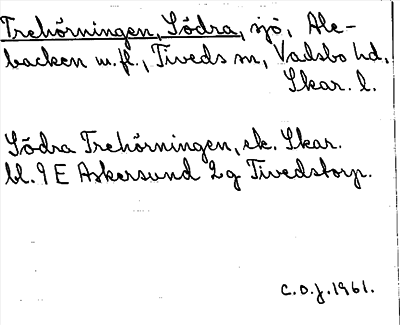 Trehörningen, Södra, sjö, Ale-
backen m.fl., Tiveds sn, Vadsbo hd,
Skar. l.
Södra Trehörningen, ek. Skar.
bl. 9 E Askersund 2 g Tivedstorp.
C.O.J. 1961.